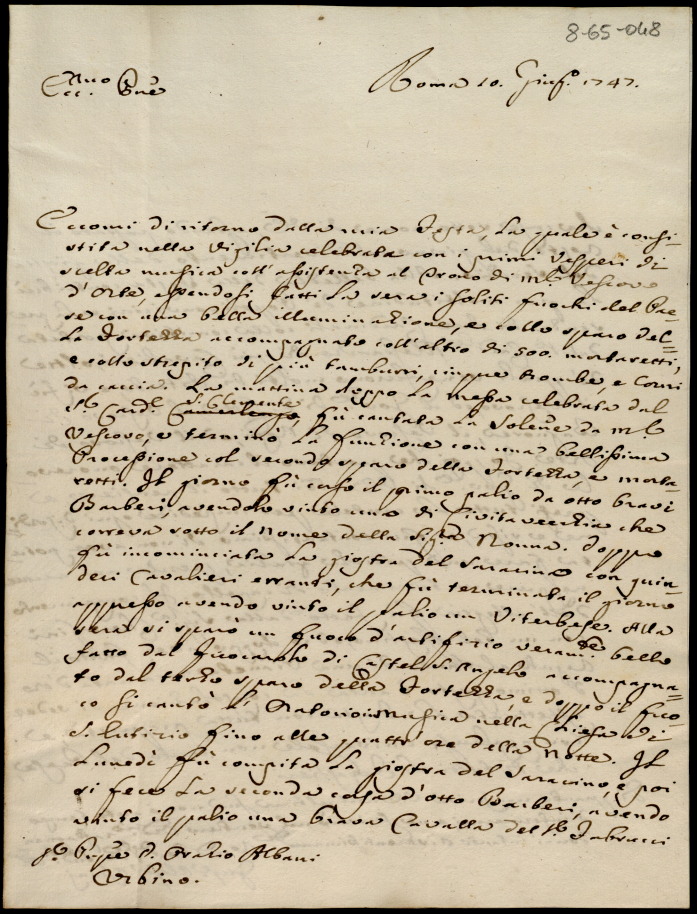 8-65-048
Ecc.mo Pnē
Roma 10. Giug.o 1747.
Eccomi di ritorno dalla mia Festa, la quale è consi-
stita nella Vigilia celebrata con i primi Vesperi di
scelta musica coll'assistenza al Trono di M.r Vescovo
d'Orte, essendosi fatti la sera i soliti fuochi del Pae-
se con una bella illuminazione, e collo sparo del=
la Fortezza accompagnato coll'altro di 500. mortaretti,
e collo strepito di più tamburri, cinque trombe, e Corni
da caccia. La mattina doppo la messa celebrata dal
S.r Card.l S. Clemente, fù cantata la Solēne da M.r
Vescovo, e terminò la funzione con una bellissima
Processione col secondo sparo della Fortezza, e morta-
retti. Il giorno fù corso il primo palio da otto bravi
Barberi, avendolo vinto uno di Civitavecchia che
correva sotto il nome della Sig.ra Nonna. Doppo
fù incominciata la giostra del Saracino con quin-
deci Cavalieri erranti, che fù terminata il giorno
appresso avendo vinto il palio un Viterbese. Alla
sera si sparò un fuoco d'artifizio veram.te bello
fatto dal Focarolo di Castel S. Angelo accompagna-
to dal terzo sparo della Fortezza, e doppo il fuo-
co si cantò l'Oratorio in Musica nella Chiesa di
S. fino alle quattr'ore della notte. Il
Lunedì fù compita la giostra del Saracino, e poi
si fece la seconda corsa d'otto Barberi, avendo
vinto il palio una brava Cavalla del S.r Fabrucci
S.r D. Orazio Albani
Urbino.